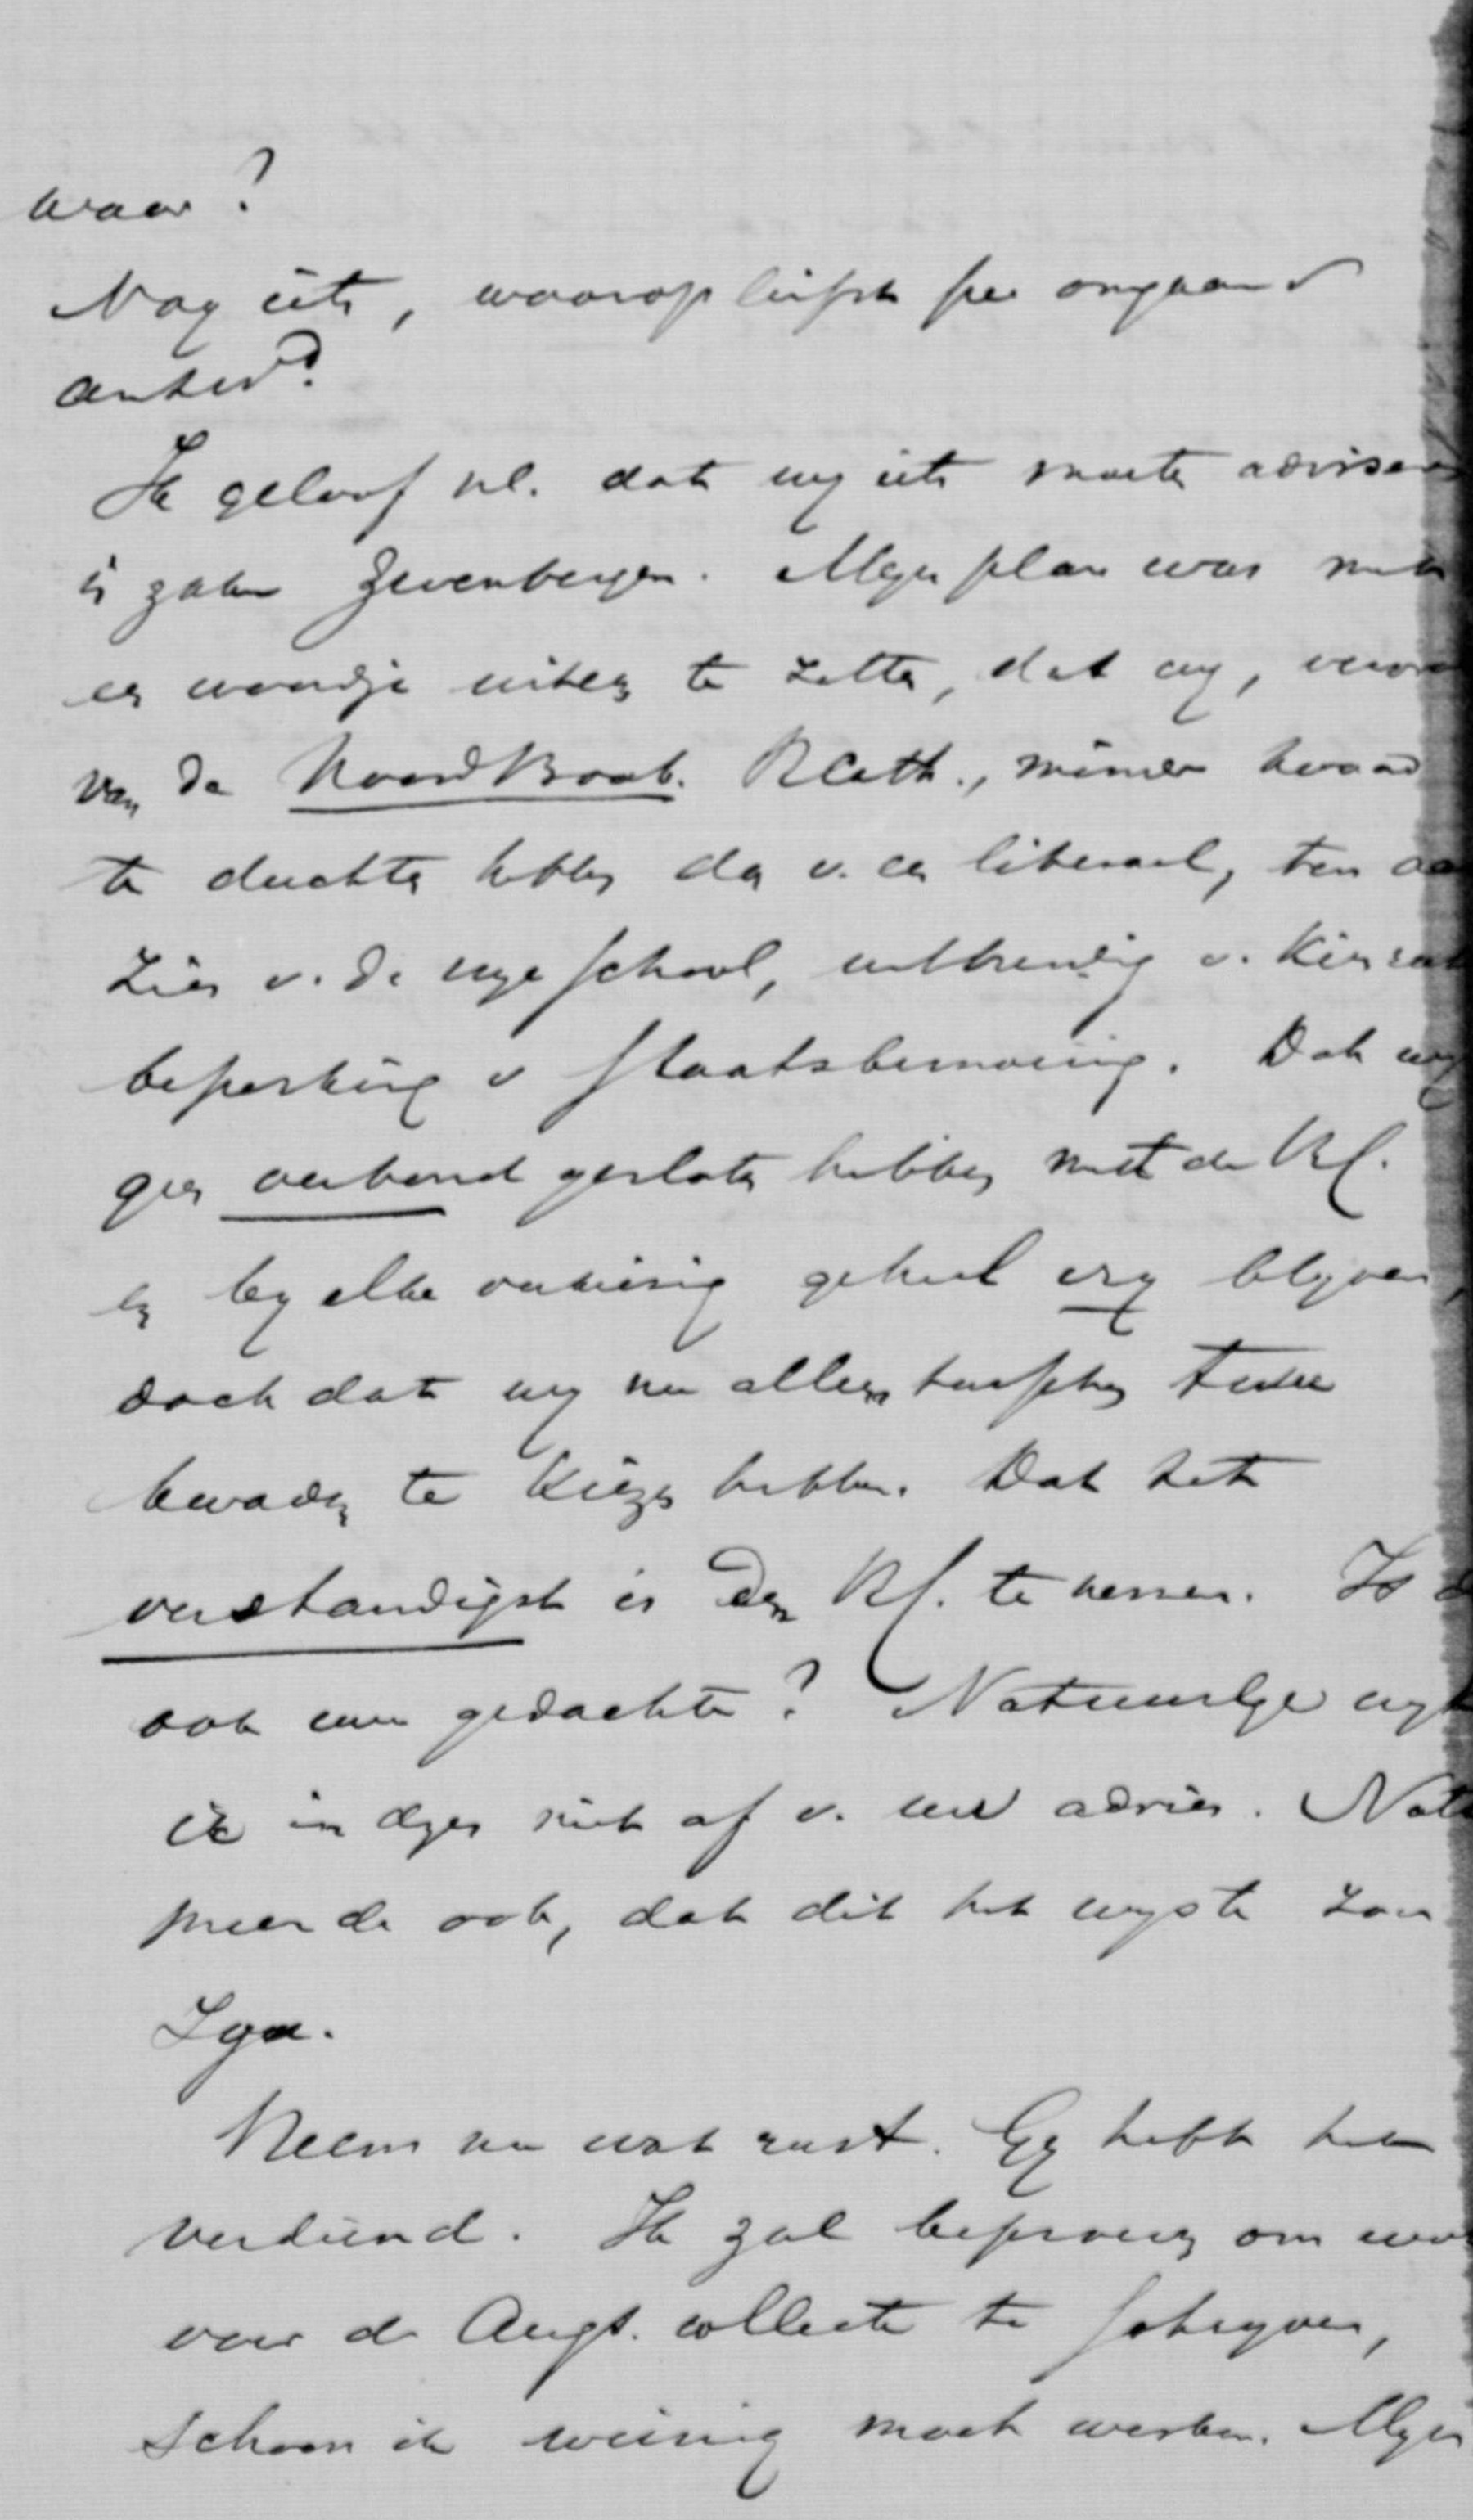 waar?
Nog iets, waarop liefst per omgaand
antwd.
Ik geloof nl. dat wy iets moeten adviseren
in zake Zevenbergen. Myn plan was met
een woordje uiteen te zetten, dat wy, vooral
van de NoordBrab. RCath., minder kwaad
te duchten hebben dan v. een liberaal, ten aan
zien v. de vrye school, uitbreiding v. kiesrecht
beperking v staatsbemoeiing. Dat wy
geen verbond gesloten hebben met de RC.
en by elke verkiezing geheel vry blyven,
doch dat wy nu alleen tusschen twee
kwaden te kiezen hebben. Dat het
verstandigst is den RC. te nemen. Is dit
ook uw gedachte? Natuurlyk wyk
ik in dezen niet af v. uw advies. Nota
meende ook, dat dit het wyste zou
zyn.
Neem nu wat rust. Gy hebt het
verdiend. Ik zal beproeven om wat
voor de Augs. collecte te schryven,
schoon ik weinig moet werken. Myn